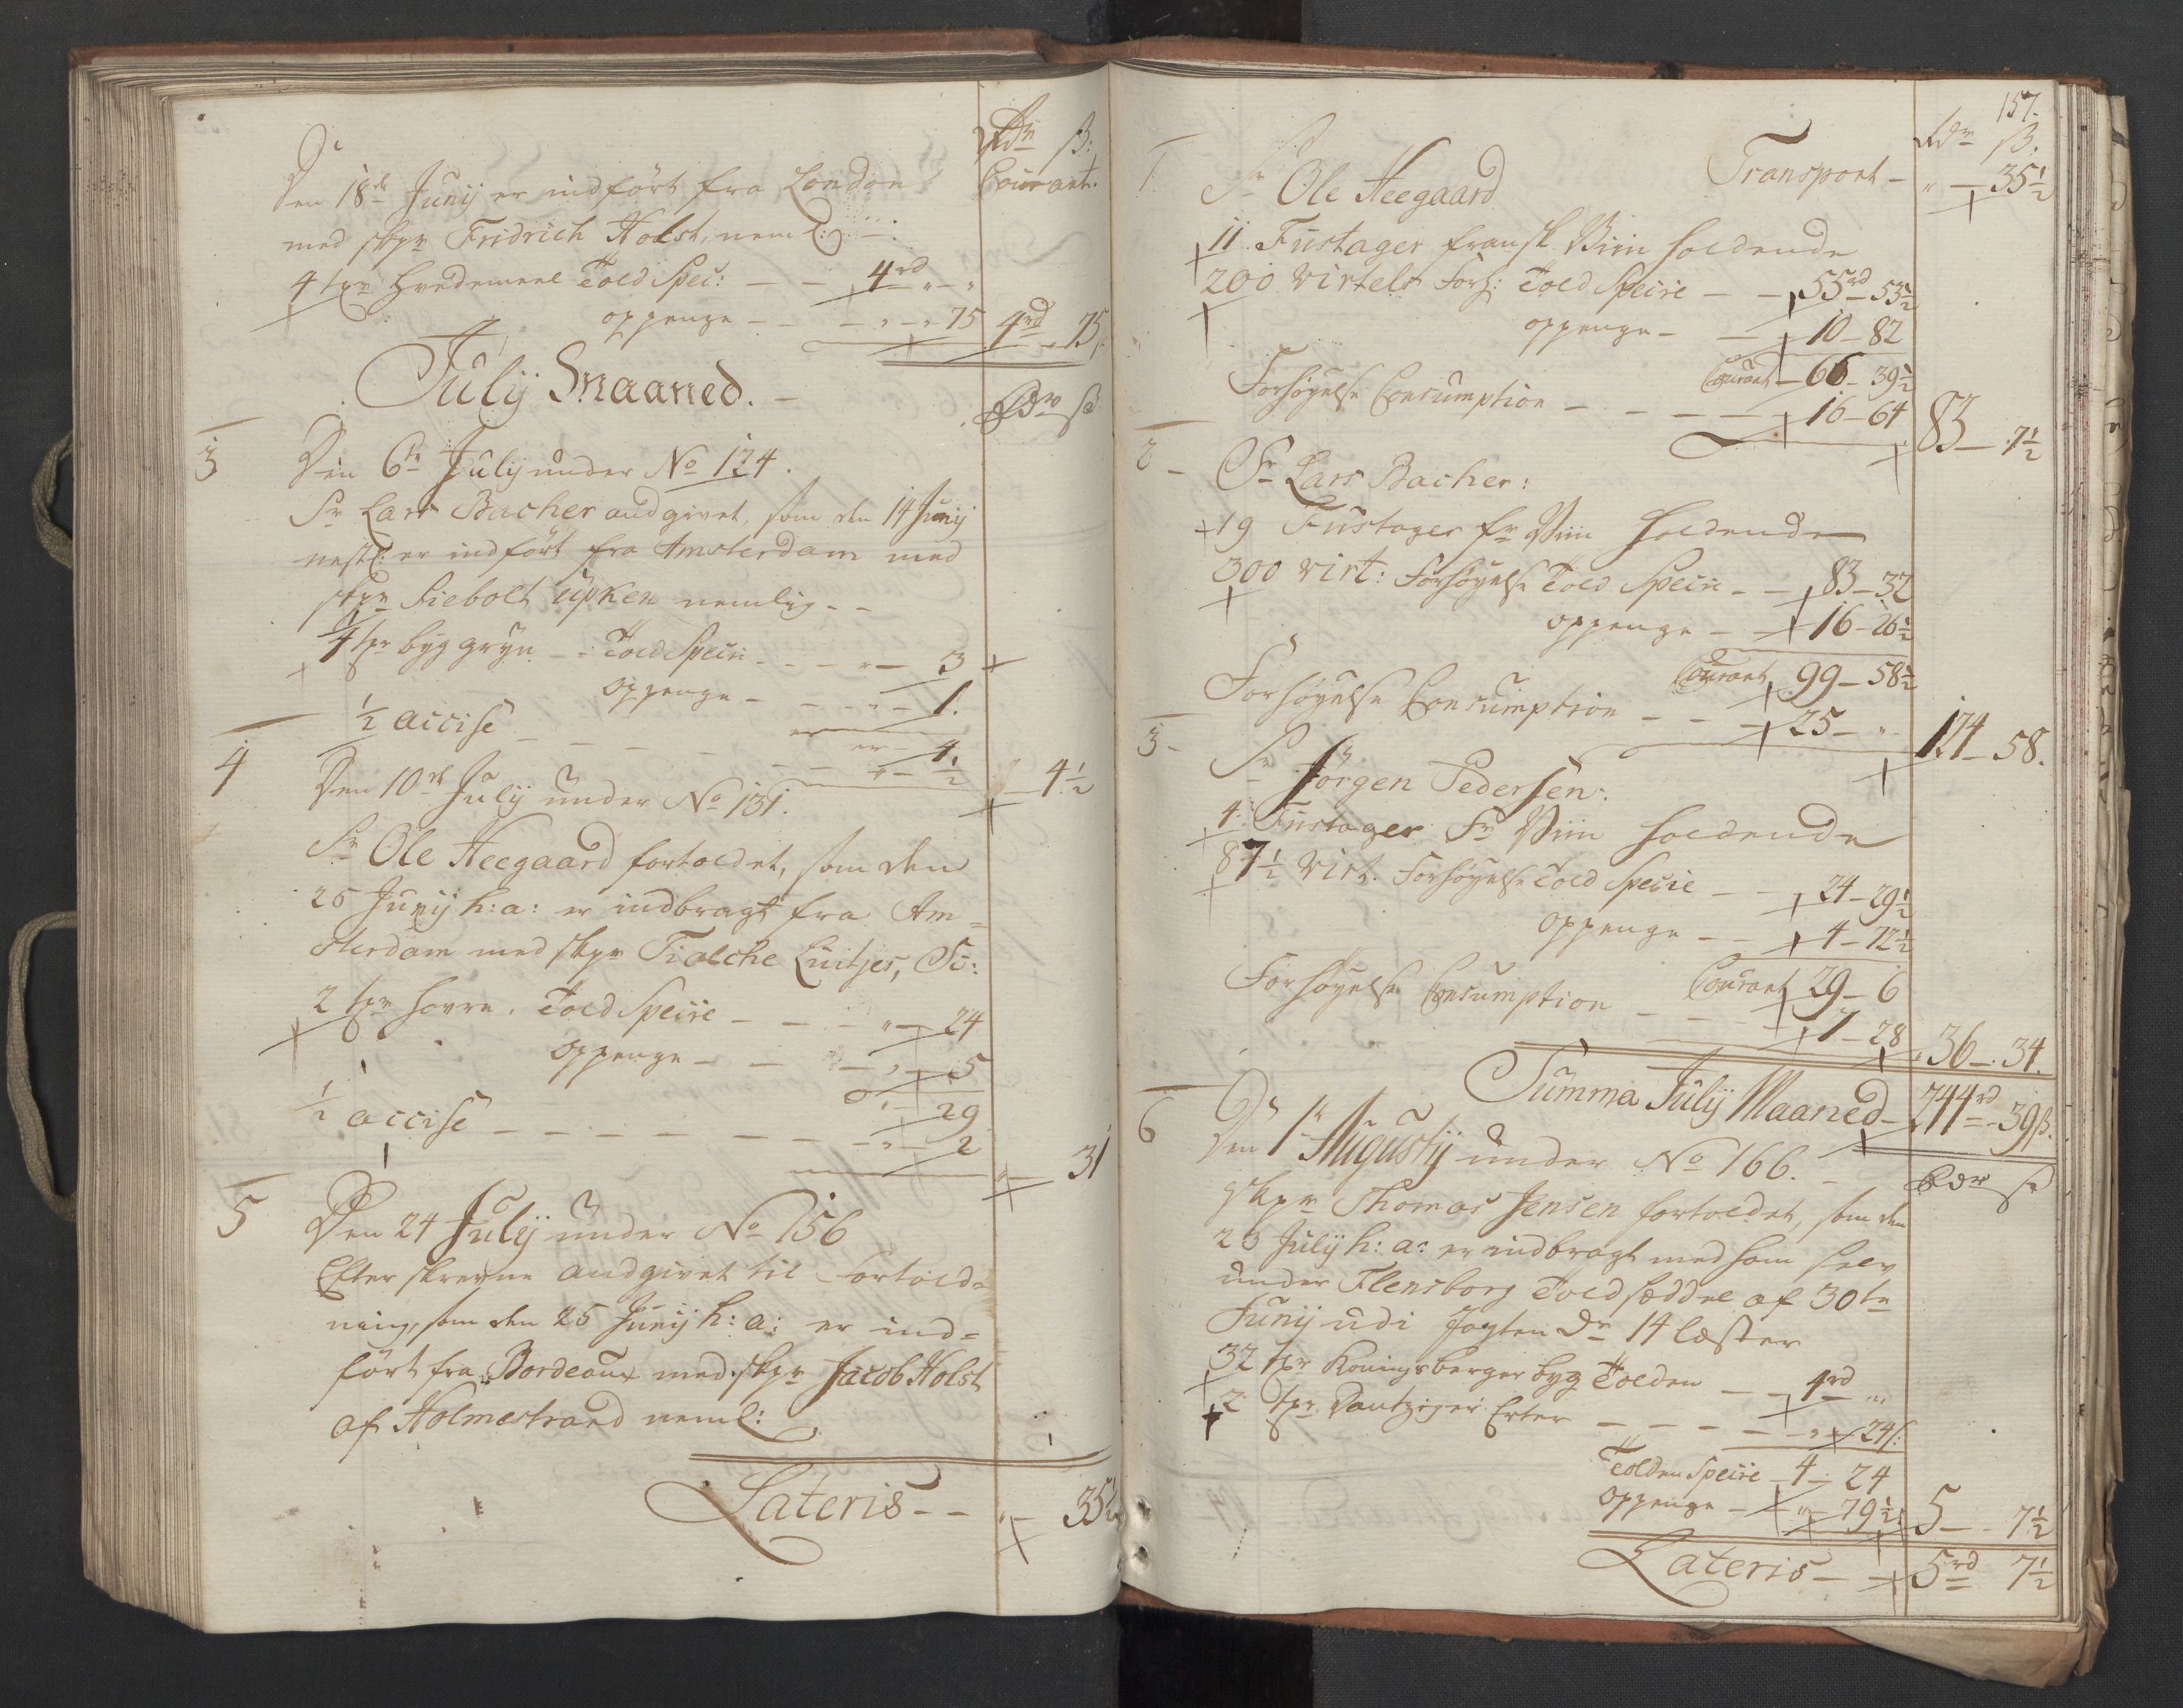 Rdr ß:
Courant.
Den 18de Junij er indført fra London
med skpr Fridrich Holst, neml:
4 tpr Hvedemeel Told Spec: 4rd " "
oppenge " 75 4rd 75
Julij Maaned.
Rdr ß
3 Den 6te Julij under No 124.
Sr Lars Bacher andgivet, som den 14 Junij
nestl: er indført fra Amsterdam med
skpr Siebolt üpken nemlig
4 tpr byg gryn Told Specie " 3
oppenge " 1.
er 4.
½ accise " ½ " 4½
4 Den 10de Julij under No 131.
Sr Ole Heegaard fortoldet, som den
25 Junij h: a: er indbragt fra Am=
sterdam med skpr Tialche Luitjes, Nl:
2 tpr Havre. Told Specie " 24
oppenge " 5
" 29
½ accise " 2 " 31
5 Den 24 Julij under No 156
Efterskrevne andgivet til fortold=
ning, som den 25 Junij h: a: er ind=
ført fra Bordeaux med skpr Jacob Holst
af Holmestrand neml:
Lateris " 35½
157.
Rdr ß.
1. Sr Ole Heegaard Transport " 35½
11 Fustager fransk Viin holdende
200 virtels Forh: Told Specie 55rd 53½
oppenge 10 82
Courant 66 39½
Forhøyelse Consumption 16 64 83 7½
2 Sr Lars Bacher:
19 Fustager fr Viin holdende
300 virt: Forhøyelse Told Specie 83 32
oppenge 16 26½
Courant 99 58½
Forhøyelse Consumption 25 " 124 58.
3 Sr Jørgen Pedersen.
4 Fustager Fr Viin holdende
87½ virt. Forhøyelse Told Specie 24 29½
oppenge 4 72½
Courant 29 6
Forhøyelse Consumption 7 28 36 34.
Summa Julij Maaned 244rd 39ß.
6 Den 1te Augustij under No 166.
Rdr ß
skpr Thomas Jensen fortoldet, som den
23 Julij h: a: er indbragt med ham selv
under Flensborg Told seddel af 30te
Junij udi Jagten Dr 14 læster
32 tpr Konigsberger byg Tolden 4rd "
2 tpr Dantziger Erter " 24ß
Tolden Specie 4 24
oppenge " 79½ 5 7½
Lateris 5rd 7½